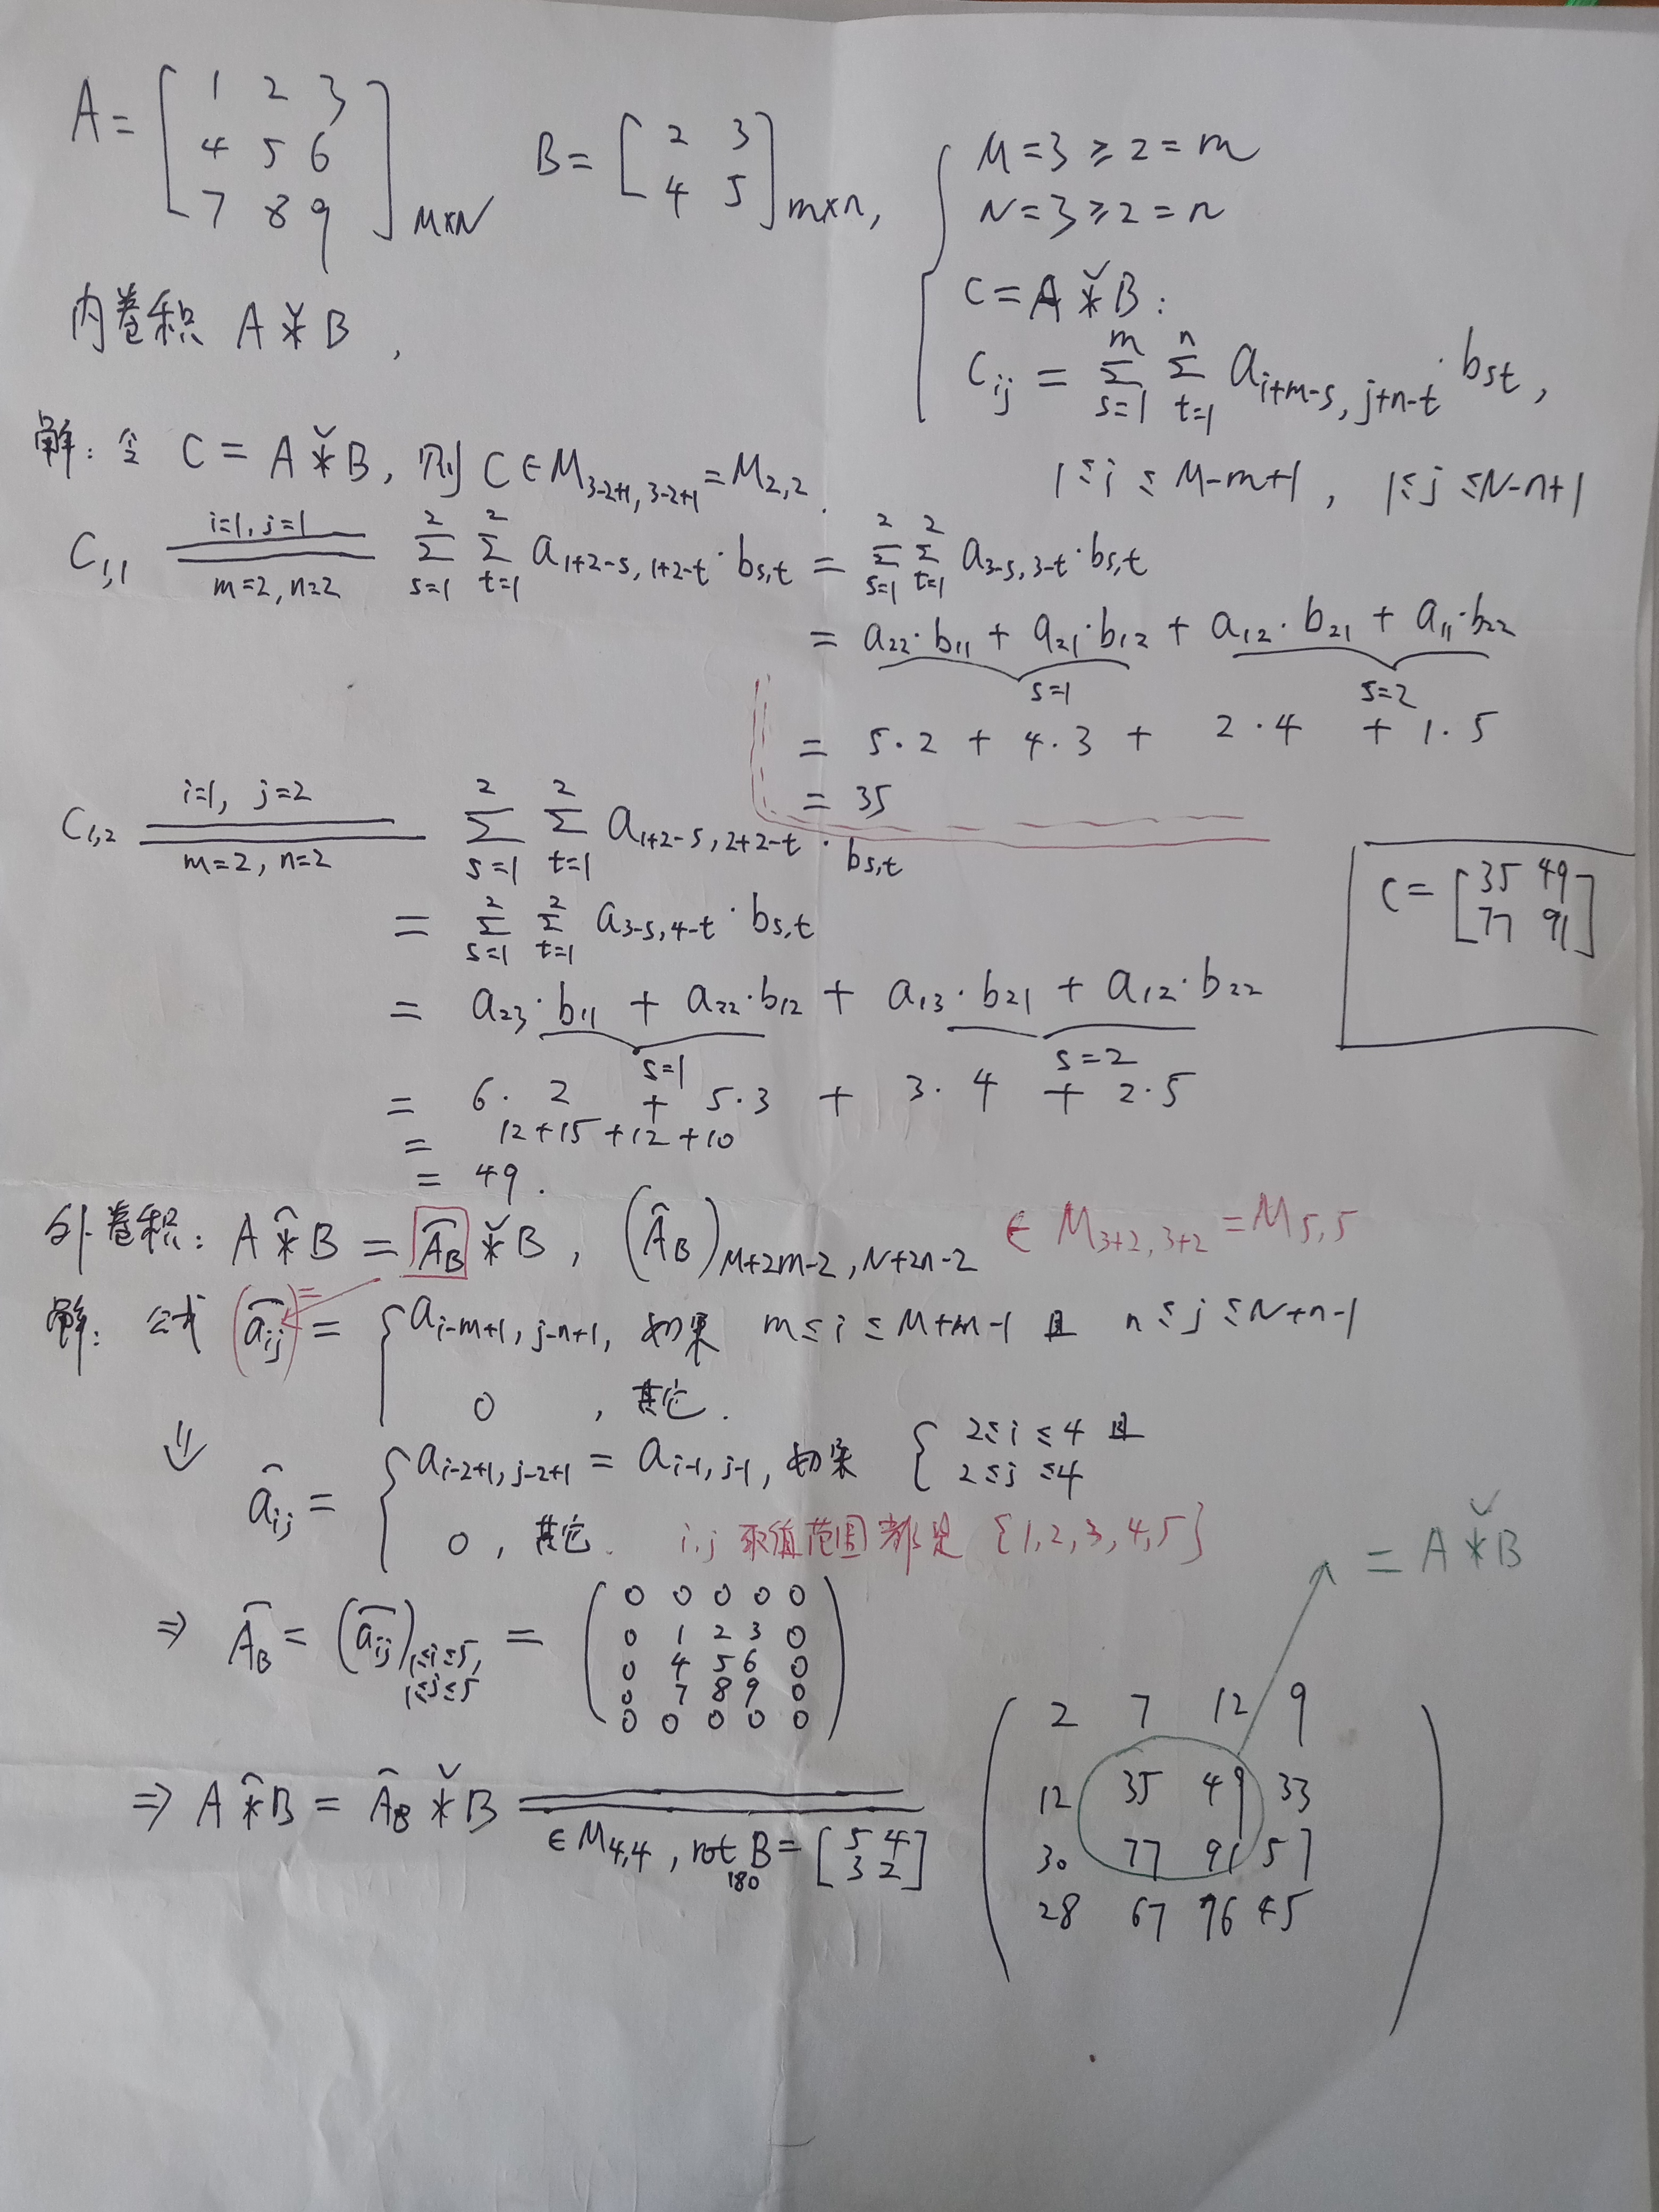 A = [1 2 3
4 5 6
7 8 9]_{M×N}
B = [2 3
4 5]_{m×n},
{ M = 3 ≥ 2 = m
N = 3 ≥ 2 = n
C = A ⩡* B :
C_{ij} = Σ_{s=1}^{m} Σ_{t=1}^{n} a_{i+m-s, j+n-t} · b_{st},
1 ≤ i ≤ M-m+1, 1 ≤ j ≤ N-n+1
内卷积 A *̌ B,
解: 令 C = A *̌ B, 则 C ∈ M_{3-2+1, 3-2+1} = M_{2,2}.
C_{1,1} =(i=1, j=1; m=2, n=2)= Σ_{s=1}^{2} Σ_{t=1}^{2} a_{1+2-s, 1+2-t} · b_{s,t} = Σ_{s=1}^{2} Σ_{t=1}^{2} a_{3-s, 3-t} · b_{s,t}
= a_{22}·b_{11} + a_{21}·b_{12} + a_{12}·b_{21} + a_{11}·b_{22}
s=1 s=2
= 5·2 + 4·3 + 2·4 + 1·5
= 35
C_{1,2} =(i=1, j=2; m=2, n=2)= Σ_{s=1}^{2} Σ_{t=1}^{2} a_{1+2-s, 2+2-t} · b_{s,t}
= Σ_{s=1}^{2} Σ_{t=1}^{2} a_{3-s, 4-t} · b_{s,t}
= a_{23}·b_{11} + a_{22}·b_{12} + a_{13}·b_{21} + a_{12}·b_{22}
s=1 s=2
= 6·2 + 5·3 + 3·4 + 2·5
= 12+15+12+10
= 49.
C = [35 49
77 91]
外卷积: A *̂ B = Â_B *̌ B, (Â_B)_{M+2m-2, N+2n-2} ∈ M_{3+2, 3+2} = M_{5,5}
解: 公式 (â_{ij}) = { a_{i-m+1, j-n+1}, 如果 m ≤ i ≤ M+m-1 且 n ≤ j ≤ N+n-1
0, 其它.
⇓ â_{ij} = { a_{i-2+1, j-2+1} = a_{i-1, j-1}, 如果 { 2≤i≤4 且
2≤j≤4
0, 其它. i,j 取值范围都是 {1,2,3,4,5}
= A *̌ B
⇒ Â_B = (â_{ij})_{1≤i≤5, 1≤j≤5} = (0 0 0 0 0
0 1 2 3 0
0 4 5 6 0
0 7 8 9 0
0 0 0 0 0)
⇒ A *̂ B = Â_B *̌ B =(∈ M_{4,4}, rot_{180} B = [5 4
3 2])=
(2 7 12 9
12 35 49 33
30 77 91 57
28 67 76 45)